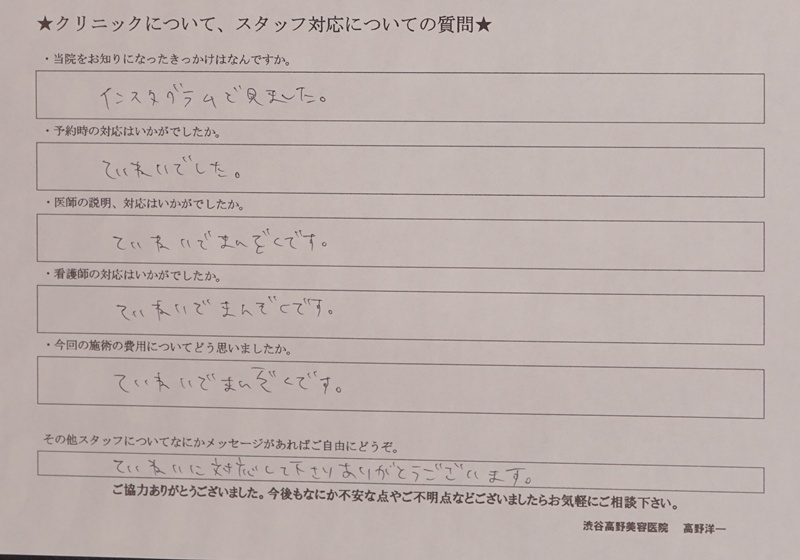 ★クリニックについて、スタッフ対応についての質問★
・当院をお知りになったきっかけはなんですか。
インスタグラムで見ました。
・予約時の対応はいかがでしたか。
ていねいでした。
・医師の説明、対応はいかがでしたか。
ていねいでまんぞくです。
・看護師の対応はいかがでしたか。
ていねいでまんぞくです。
・今回の施術の費用についてどう思いましたか。
ていねいでまんぞくです。
その他スタッフについてなにかメッセージがあればご自由にどうぞ。
ていねいに対応して下さりありがとうございます。
ご協力ありがとうございました。今後もなにか不安な点やご不明点などございましたらお気軽にご相談下さい。
渋谷高野美容医院 高野洋一